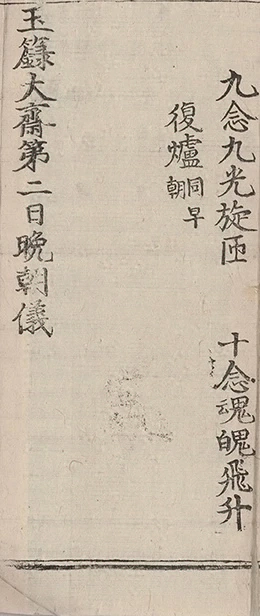 九念九光旋匝 十念魂魄飛升
復爐同早朝
玉籙大齋第二日晚朝儀